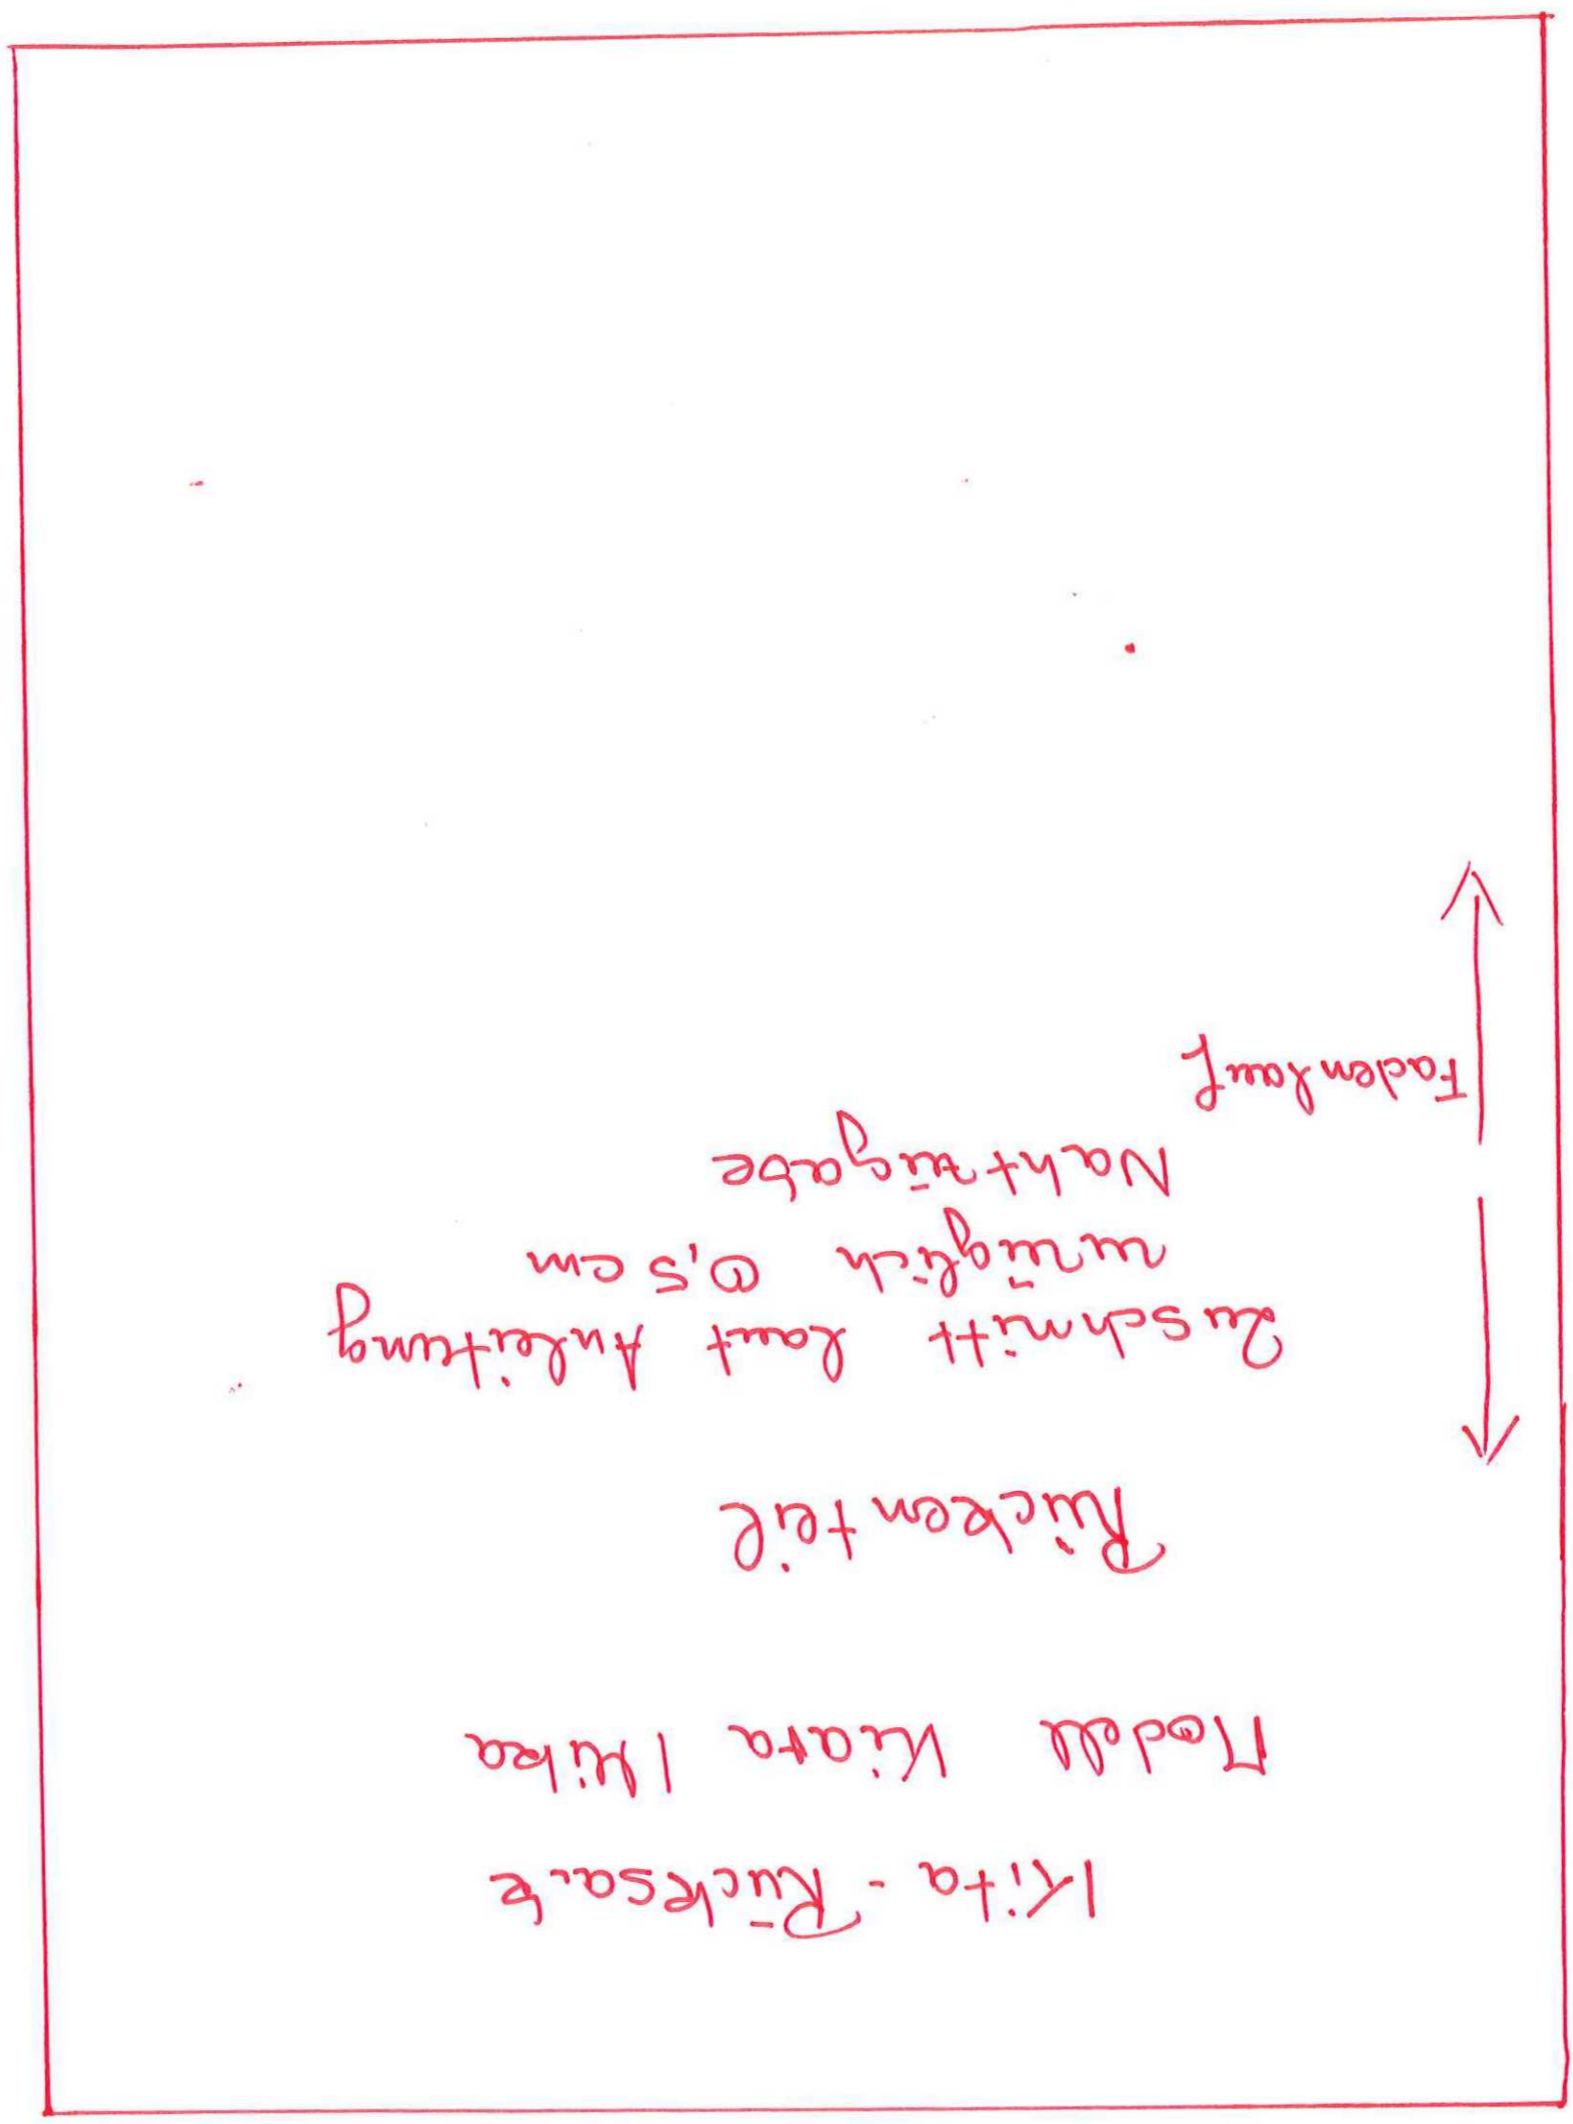 Kita - Rucksack
Modell Kiara / Mika
Rückenteil
Zuschnitt laut Anleitung
zuzüglich 0,5 cm
Nahtzugabe
Fadenlauf